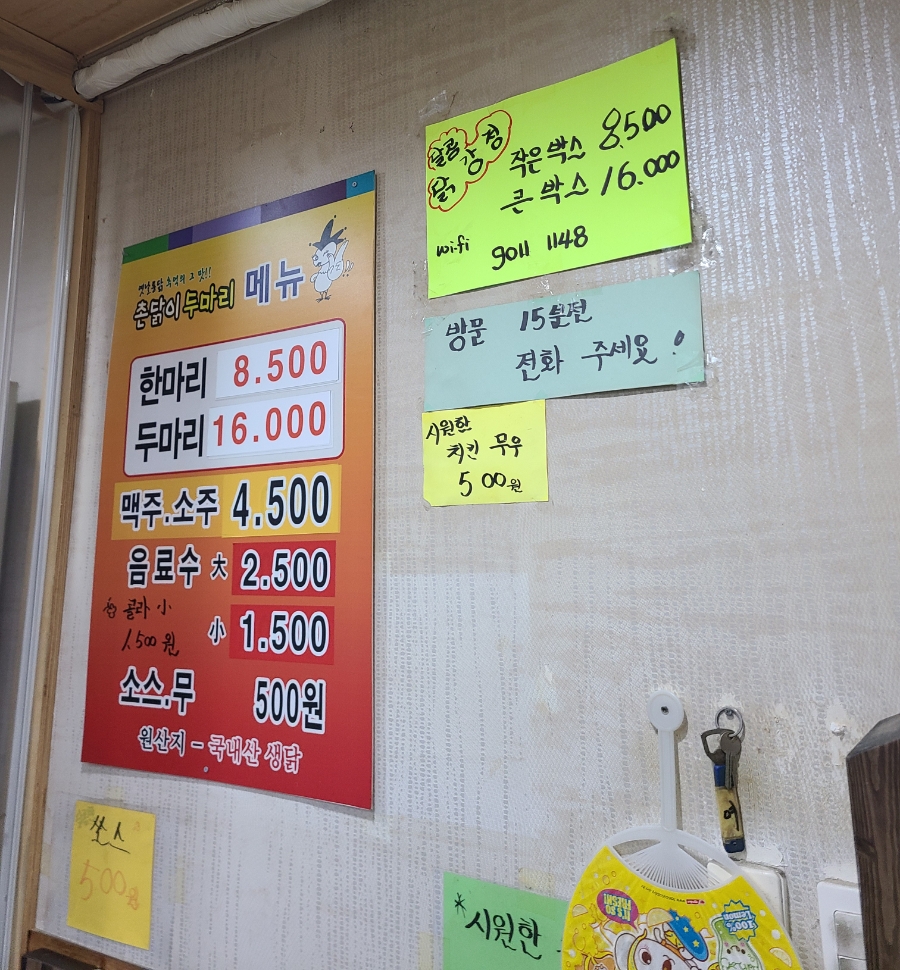 옛날통닭 추억의 그 맛!!
촌닭이 두마리 메뉴
한마리 8.500
두마리 16.000
맥주.소주 4.500
음료수 大 2.500
小 1.500
콜라 小
1,500원
소스.무 500원
원산지 - 국내산 생닭
달콤
닭강정
작은박스 8,500
큰박스 16.000
wi-fi 9011 1148
방문 15분전
전화 주세요!
시원한
치킨 무우
500원
쏘스
500원
*시원한
IT'S SO FRESH!
100% Lemon
여